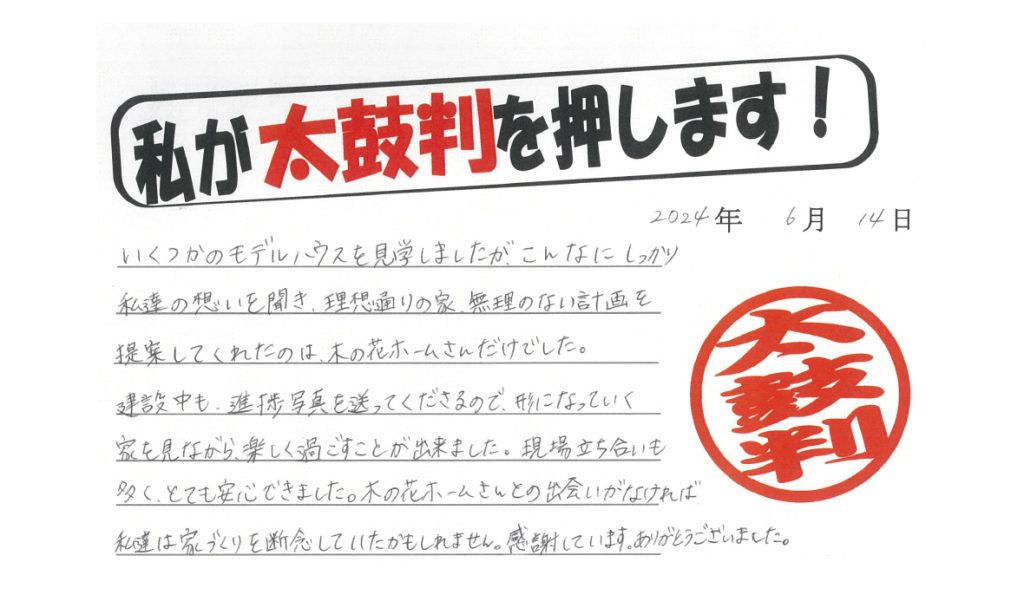 私が太鼓判を押します!
2024年 6月 14日
いくつかのモデルハウスを見学しましたが、こんなにしっかり
私達の想いを聞き、理想通りの家、無理のない計画を
提案してくれたのは、木の花ホームさんだけでした。
建設中も、進捗写真を送ってくださるので、形になっていく
家を見ながら、楽しく過ごすことが出来ました。現場立ち合いも
多く、とても安心できました。木の花ホームさんとの出会いがなければ
私達は家づくりを断念していたかもしれません。感謝しています。ありがとうございました。
太鼓判